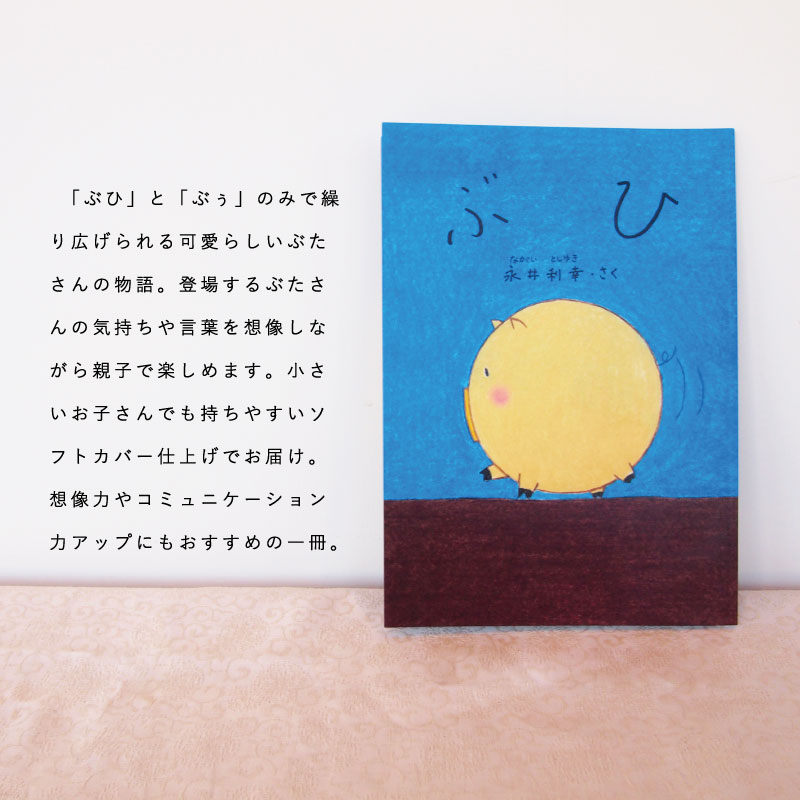 「ぶひ」と「ぶぅ」のみで繰
り広げられる可愛らしいぶた
さんの物語。登場するぶたさ
んの気持ちや言葉を想像しな
がら親子で楽しめます。小さ
いお子さんでも持ちやすいソ
フトカバー仕上げでお届け。
想像力やコミュニケーション
力アップにもおすすめの一冊。
ぶひ
ながい としゆき
永井利幸・さく